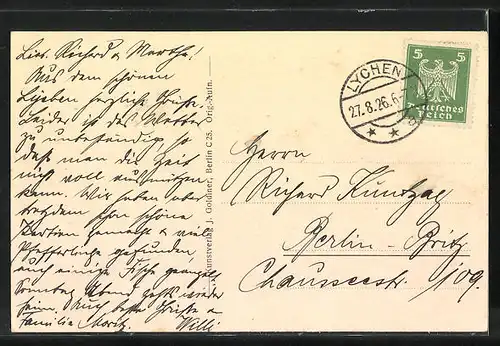 Lieb. Richard u. Martha!
Aus dem schönen
Lychen herzliche Grüße.
Leider ist das Wetter
zu unbeständig so
daß man die Zeit
nicht voll ausnützen
kann. Wir haben aber
trotzdem schon schöne
Partien gemacht u. viele
Pfefferlinge gefunden,
auch einige Fische geangelt
Sonntag Abend gehts wieder
heim. Auch beste Grüße a.
Familie Moritz. Willi
Kunstverlag J. Goldiner, Berlin C 25. Orig.-Aufn.
LYCHEN
27.8.26.6-7
5 5
Deutsches
Reich
Herrn
Richard Kuntzag
Berlin-Britz
Chausseestr. 109.